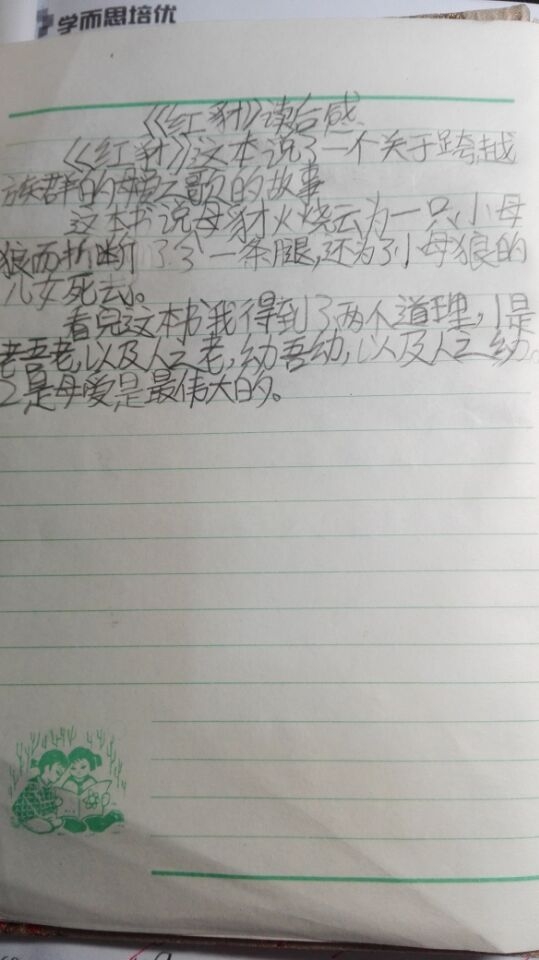 学而思培优
《红豺》读后感
《《红豺》这本说了一个关于跨越
族群的母爱之歌的故事
这本书说母豺火烧云为一只小母
狼而折断了一条腿,还为了小母狼的
儿女死去。
看完这本书我得到了两个道理,1是
老吾老,以及人之老,幼吾幼,以及人之幼。
2是母爱是最伟大的。